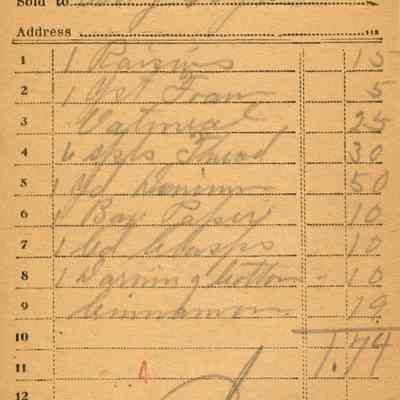 Sold to
Address 112
1 1 Raisins 15
2 1 Yst Foam 5
3 Oatmeal 25
4 6 spls Thread 30
5 1 Yd 50
6 1 Box Paper 10
7 1 Cd Clasps 10
8 1 Darning Cotton 10
9 Cinnamon 19
10 1.74
11
12